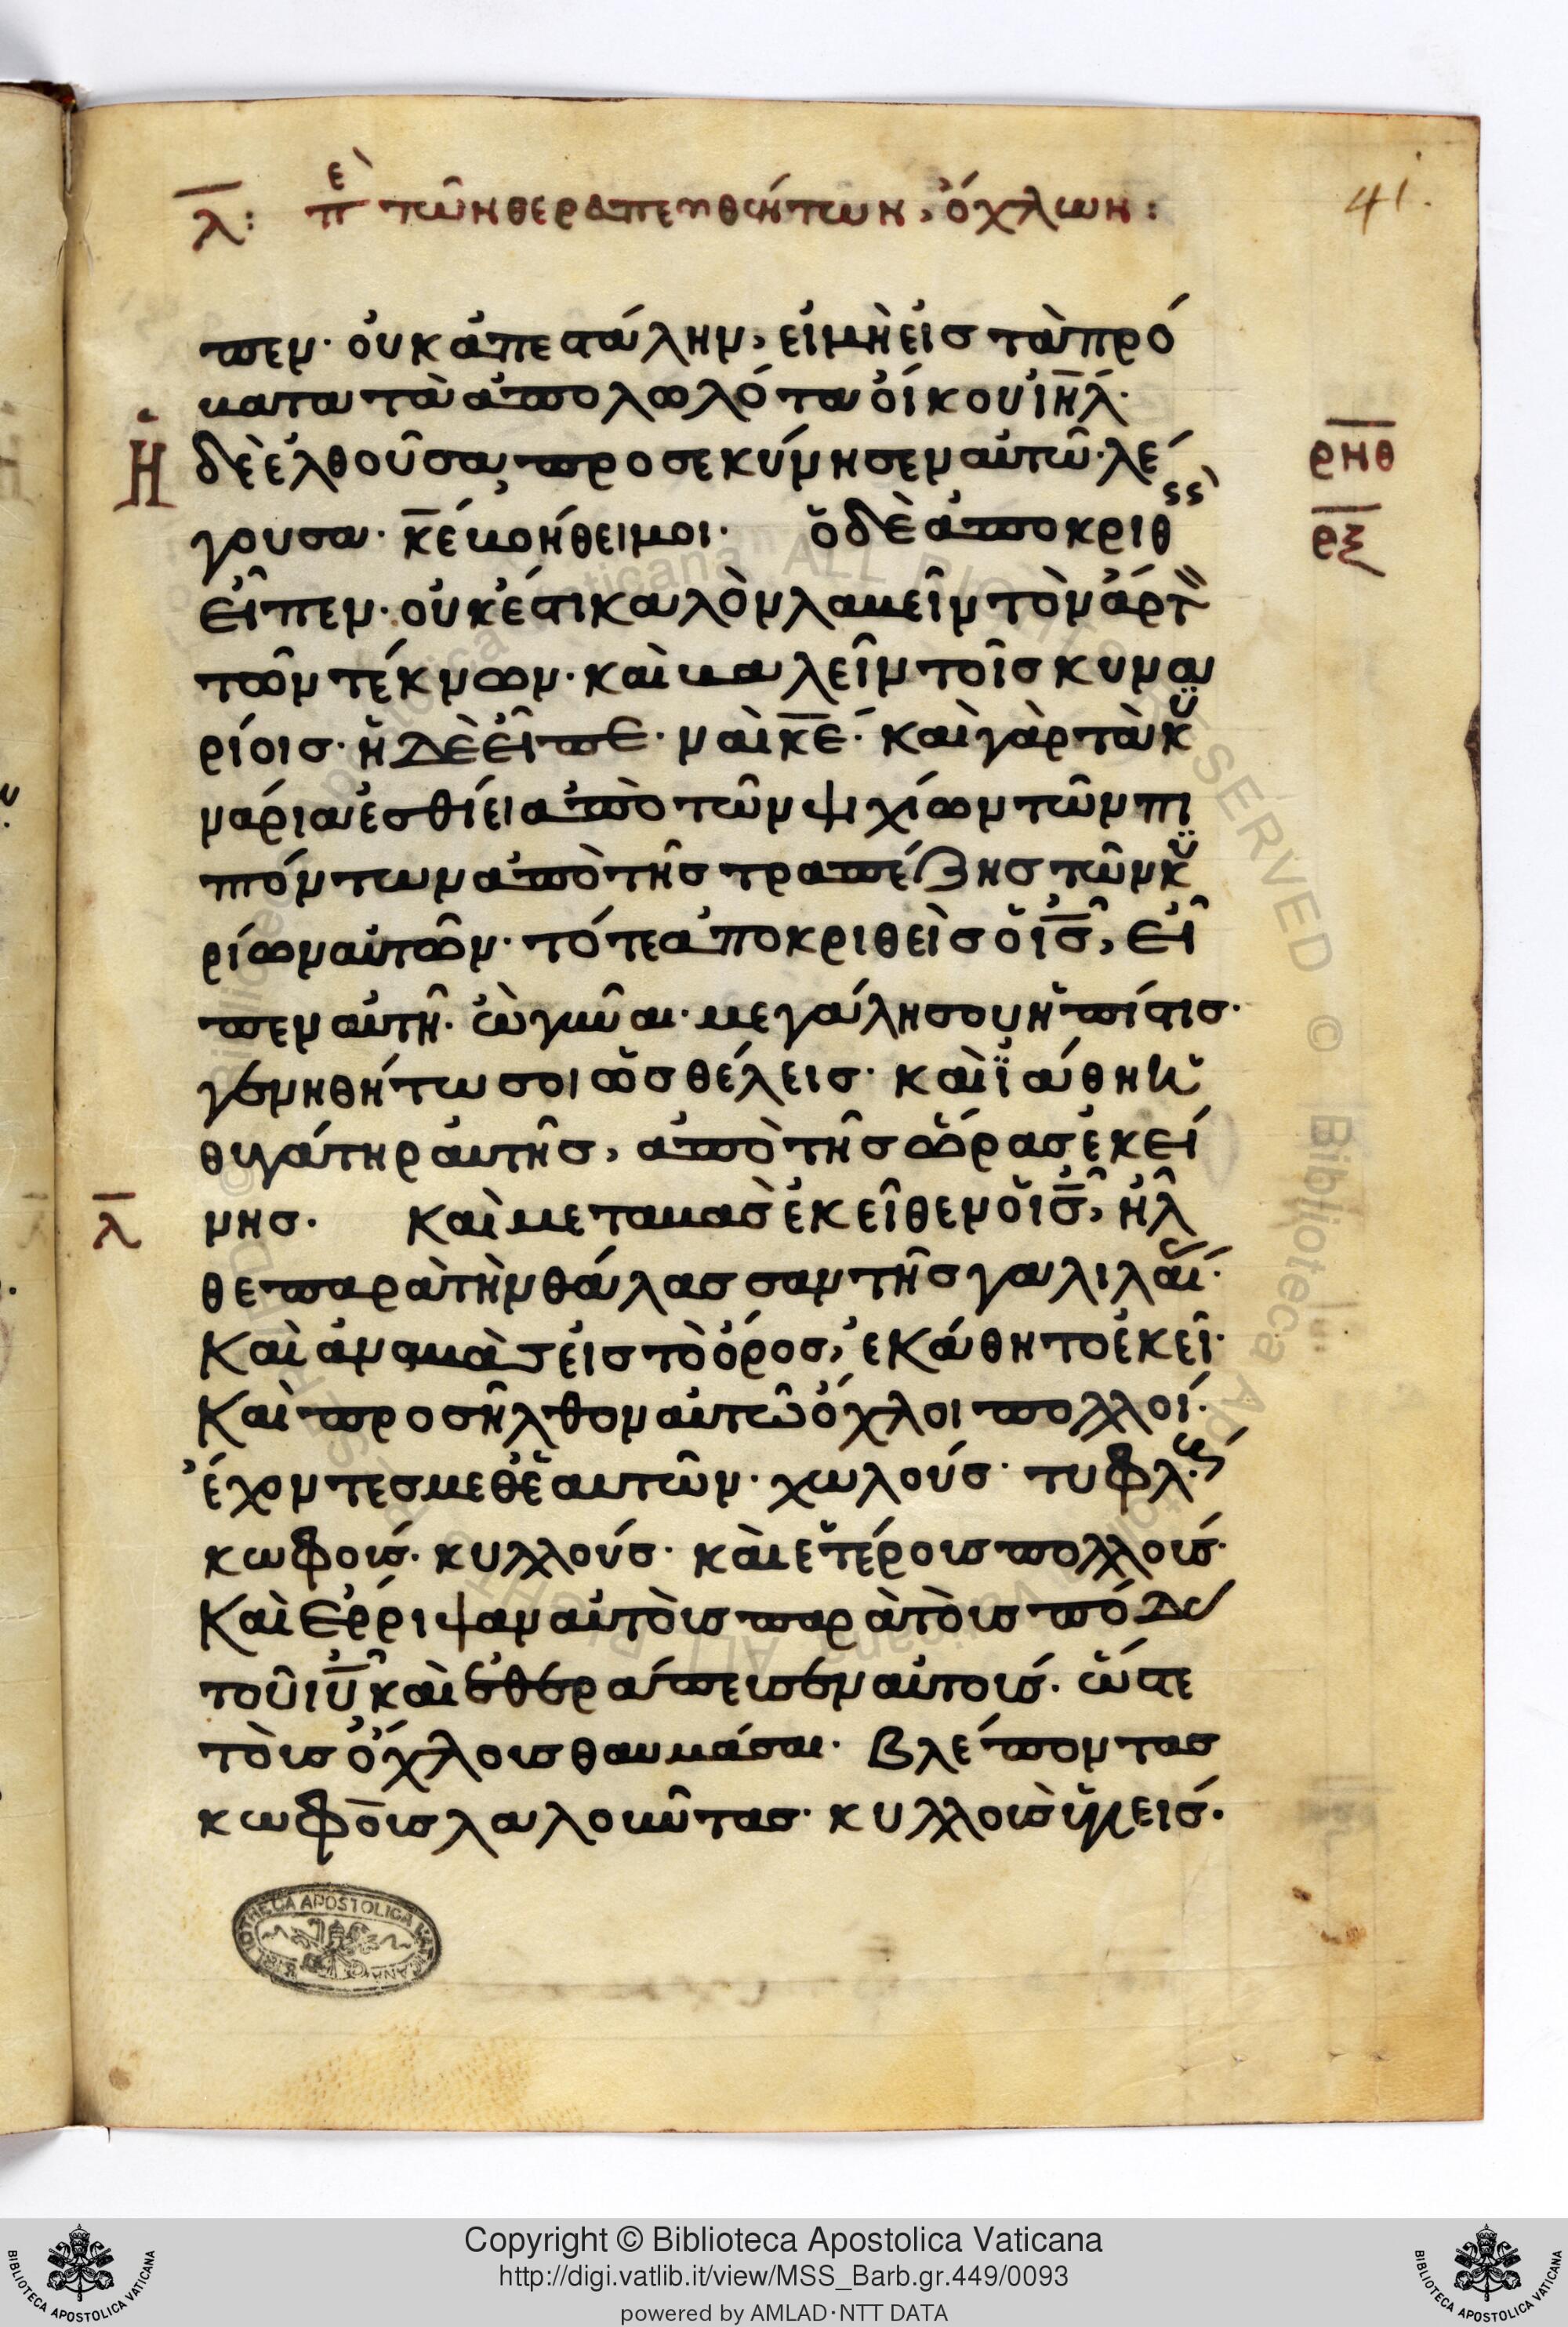 λ: πε τῶν θεραπευθέντων, ὄχλων:
41.
πεν· οὐκ ἀπεστάλην, εἰ μὴ εἰς τὰ πρό
βατα τὰ ἀπολωλότα οἴκου ιηλ·
Ἡ δὲ ἐλθοῦσα, προσεκύνησεν αὐτῶ· λέ
ρνθ
γουσα· κε βοήθει μοι· ὁ δὲ ἀποκριθ
ρξ
εἶπεν· οὐκ ἔστι καλὸν λαβεῖν τὸν ἄρτ
τῶν τέκνων· καὶ βαλεῖν τοῖς κυνα
ρίοις· ἡ δὲ εἶπε· ναὶ κε· καὶ γὰρ τὰ κυ
νάρια ἐσθίει ἀπὸ τῶν ψιχίων τῶν πι
πτόντων ἀπὸ τῆς τραπέζης τῶν κυ
ρίων αὐτῶν· τότε ἀποκριθεὶς ὁ ις, εἶ
πεν αὐτῆ· ὦ γύναι· μεγάλη σου ἡ πίστις·
γενηθήτω σοι ὡς θέλεις· καὶ ἰάθη ἡ
θυγάτηρ αὐτῆς, ἀπὸ τῆς ὥρας ἐκεί
λ νης· Καὶ μεταβὰς ἐκεῖθεν ὁ ις, ἦλ
θε παρὰ τὴν θάλασσαν τῆς γαλιλαί·
Καὶ ἀναβὰς εἰς τὸ ὄρος, ἐκάθητο ἐκεῖ·
Καὶ προσῆλθον αὐτῶ ὄχλοι πολλοί·
ἔχοντες μεθ ἑαυτῶν· χωλούς· τυφλούς
κωφούς· κυλλούς· καὶ ἑτέρους πολλούς·
Καὶ ἔρριψαν αὐτοὺς παρὰ τοὺς πόδας
τοῦ ιυ καὶ ἐθεράπευσεν αὐτούς· ὥστε
τοὺς ὄχλους θαυμάσαι· βλέποντας
κωφοὺς λαλοῦντας· κυλλοὺς ὑγιεῖς·
BIBLIOTHECA APOSTOLICA VATICANA
Copyright © Biblioteca Apostolica Vaticana
http://digi.vatlib.it/view/MSS_Barb.gr.449/0093
powered by AMLAD·NTT DATA
BIBLIOTECA APOSTOLICA VATICANA
BIBLIOTECA APOSTOLICA VATICANA